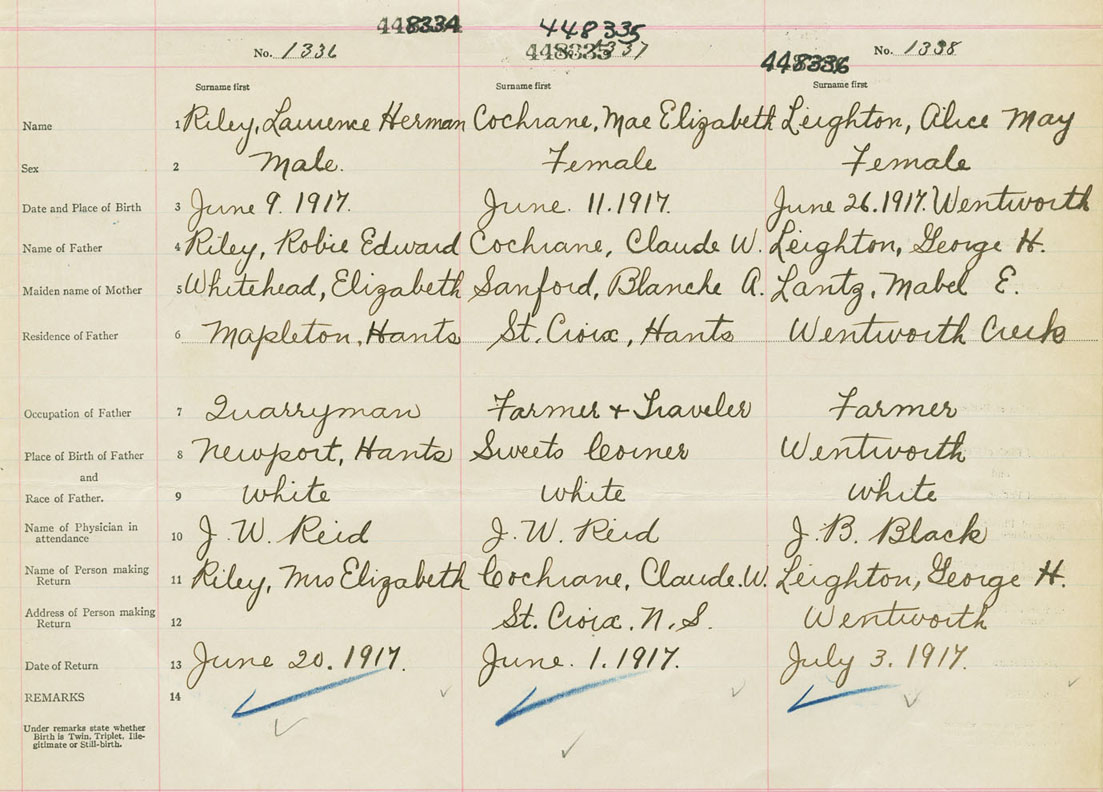 448334 448335
No. 1336 448335 1337 448336 No. 1338
Surname first Surname first Surname first
Name 1 Riley, Laurence Herman Cochrane, Mae Elizabeth Leighton, Alice May
Sex 2 Male. Female Female
Date and Place of Birth 3 June 9. 1917. June. 11. 1917. June 26. 1917. Wentworth
Name of Father 4 Riley, Robie Edward Cochrane, Claude W. Leighton, George H.
Maiden name of Mother 5 Whitehead, Elizabeth Sanford, Blanche A. Lantz, Mabel E.
Residence of Father 6 Mapleton, Hants St. Croix, Hants Wentworth Creek
Occupation of Father 7 Quarryman Farmer + Traveler Farmer
Place of Birth of Father 8 Newport, Hants Sweets Corner Wentworth
and
Race of Father. 9 White White White
Name of Physician in
attendance 10 J. W. Reid J. W. Reid J. B. Black
Name of Person making
Return 11 Riley, Mrs Elizabeth Cochrane, Claude. W. Leighton, George H.
Address of Person making
Return 12 St. Croix. N.S. Wentworth
Date of Return 13 June 20. 1917. June. 1. 1917. July 3. 1917.
REMARKS 14
Under remarks state whether
Birth is Twin, Triplet, Ille-
gitimate or Still-birth.